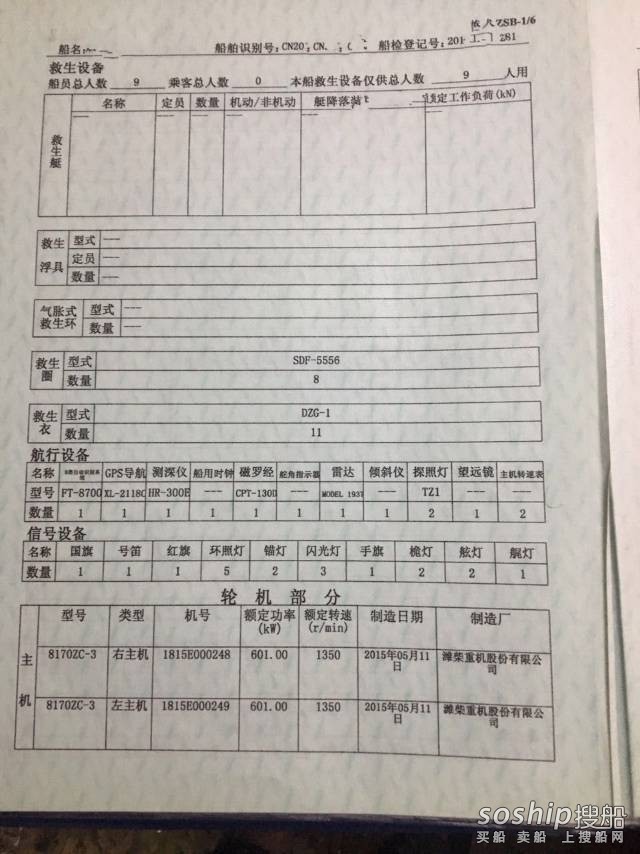 ZSB-1/6
船名: 船舶识别号: CN20 CN. 船检登记号: 201 281
救生设备
船员总人数 9 乘客总人数 0 本船救生设备仅供总人数 9 人用
救生艇 名称 定员 数量 机动/非机动 艇降落装 定工作负荷(kN)
--- --- --- --- --- ---
救生浮具 型式 ---
定员 ---
数量 ---
气胀式救生环 型式 ---
数量 ---
救生圈 型式 SDF-5556
数量 8
救生衣 型式 DZG-1
数量 11
航行设备
名称 GPS导航 测深仪 船用时钟 磁罗经 舵角指示器 雷达 倾斜仪 探照灯 望远镜 主机转速表
型号 FT-8700 XL-2118C HR-300E --- CPT-130D --- MODEL 1937 --- TZ1 --- ---
数量 1 1 1 1 1 1 1 1 2 1 2
信号设备
名称 国旗 号笛 红旗 环照灯 锚灯 闪光灯 手旗 桅灯 舷灯 艉灯
数量 1 1 1 5 2 3 1 2 2 1
轮机部分
主机 型号 类型 机号 额定功率(kW) 额定转速(r/min) 制造日期 制造厂
8170ZC-3 右主机 1815E000248 601.00 1350 2015年05月11日 潍柴重机股份有限公司
8170ZC-3 左主机 1815E000249 601.00 1350 2015年05月11日 潍柴重机股份有限公司
soship搜船
买船 卖船 上搜船网